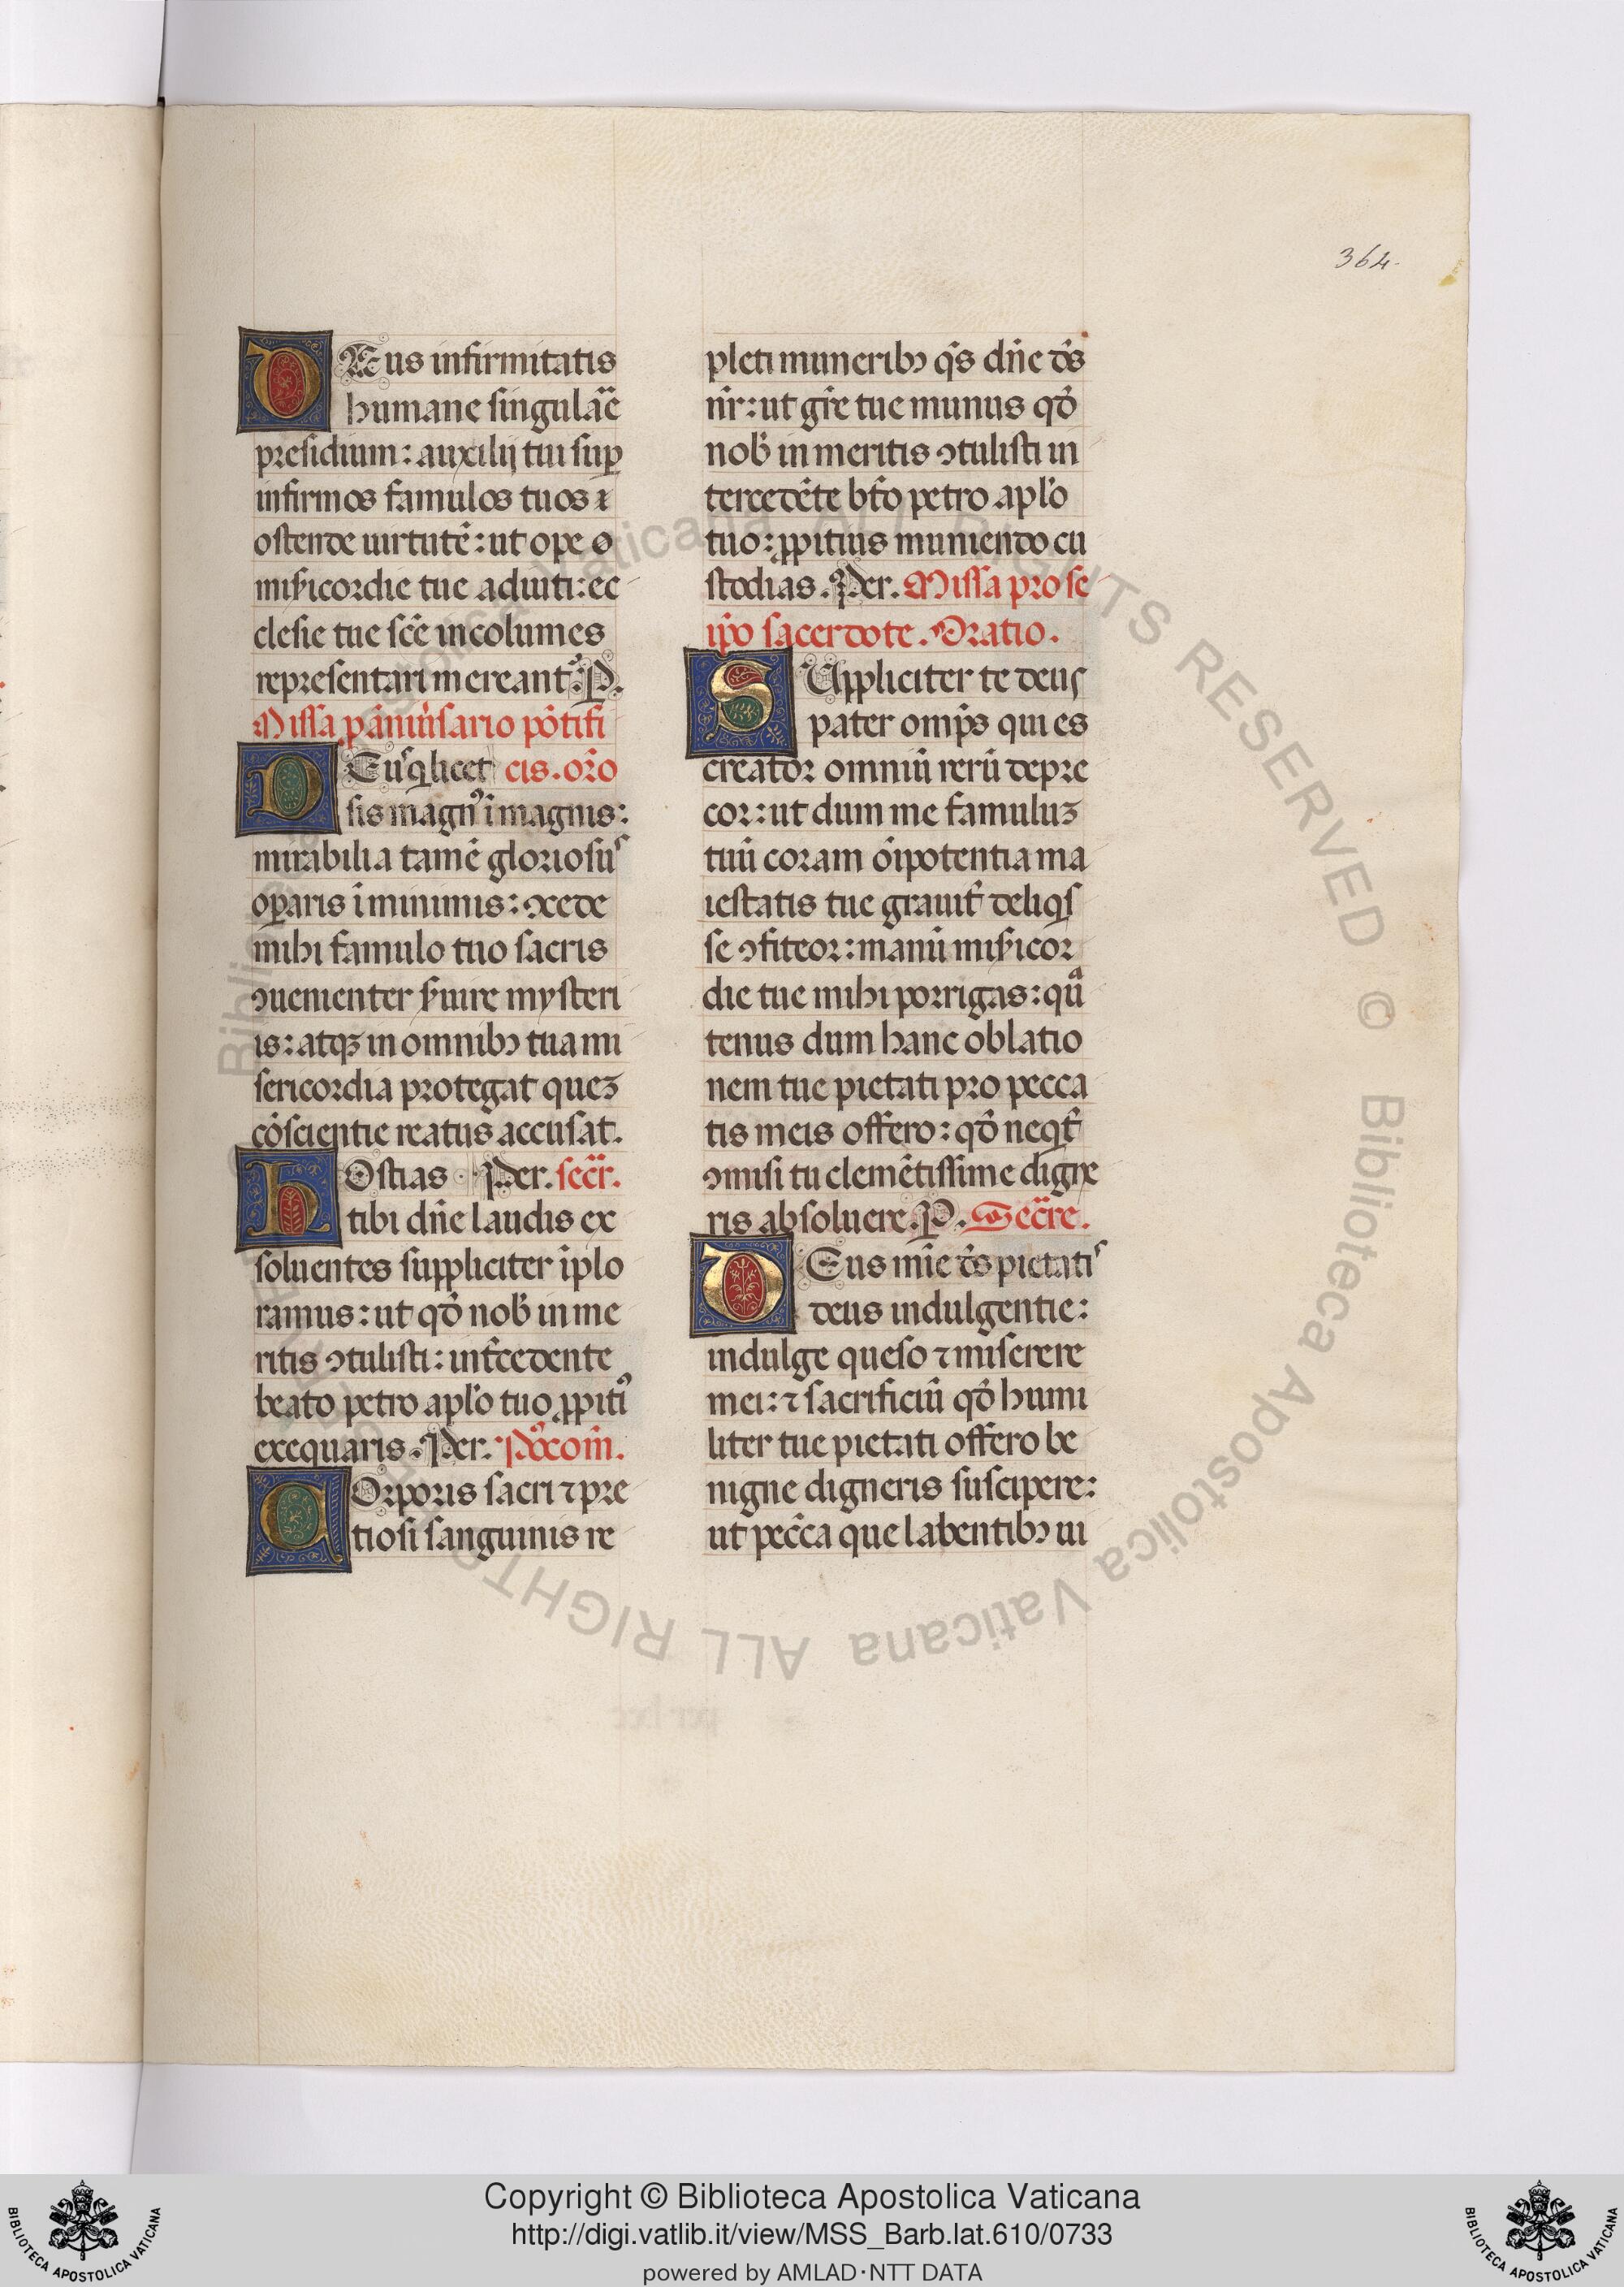 364.
DEus infirmitatis
humane singulāe
presidium: auxilij tui sup̱
infirmos famulos tuos ⁊
ostende uirtutē: ut ope
misẜicordie tue adiuti: ec
clesie tue sc̄e incolumes
representari mereant᷑. P.
Missa p̱ āniuẜsario pōtifi
DEusq̇ licet cis. or̄o
sis magnꝰ ī magnis:
mirabilia tamē gloriosiuˢ
op̱aris ī minimis: ↄcede
mihi famulo tuo sacris
ↄuenienter ẜuire mysteri
is: atqꝫ in omnibꝫ tua mi
sericordia protegat queꝫ
cōscientie reatus accusat.
HOstias Per. secr̄.
tibi dn̄e laudis ex
soluentes suppliciter īplo
ramus: ut qd̄ nob̄ in me
ritis ↄtulisti: int̄cedente
beato petro apl̄o tuo ꝓpitiꝰ
exequaris. Per. Pꝰcom̄.
COrporis sacri ⁊ pre
tiosi sanguinis re
pleti muneribꝫ qs̄ dn̄e ds̄
nr̄: ut gr̄e tue munus qd̄
nob̄ inmeritis ↄtulisti in
tercedēte bt̄o petro apl̄o
tuo: ꝓpitius muniendo cu
stodias. Per. Missa pro se
ip̄o sacerdote. Oratio.
SUppliciter te deus
pater omp̄s qui es
creator omniū rerū depre
cor: ut dum me famuluꝫ
tuū coram oīpotentia ma
iestatis tue grauit̄ deliqs
se ↄfiteor: manū misẜicor
die tue mihi porrigas: quᵃ
tenus dum hanc oblatio
nem tue pietati pro pecca
tis meis offero: qd̄ neqt̄
ↄmisi tu clemētissime digne
ris absoluere. P. Secr̄e.
DEus mīe ds̄ pietatiˢ
deus indulgentie:
indulge queso ⁊ miserere
mei: ⁊ sacrificiū qd̄ humi
liter tue pietati offero be
nigne digneris suscipere:
ut pec̄ca que labentibꝫ ui
Biblioteca Apostolica Vaticana ALL RIGHTS RESERVED © Biblioteca Apostolica Vaticana ALL RIGHTS
Copyright © Biblioteca Apostolica Vaticana
http://digi.vatlib.it/view/MSS_Barb.lat.610/0733
powered by AMLAD·NTT DATA
BIBLIOTECA APOSTOLICA VATICANA
BIBLIOTECA APOSTOLICA VATICANA